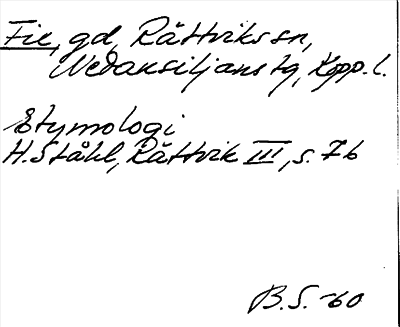 Fie, gd, Rättviks sn,
Nedansiljans tg, Kopp. l.
Etymologi
H. Ståhl, Rättvik III, s. 76
B.S. -60